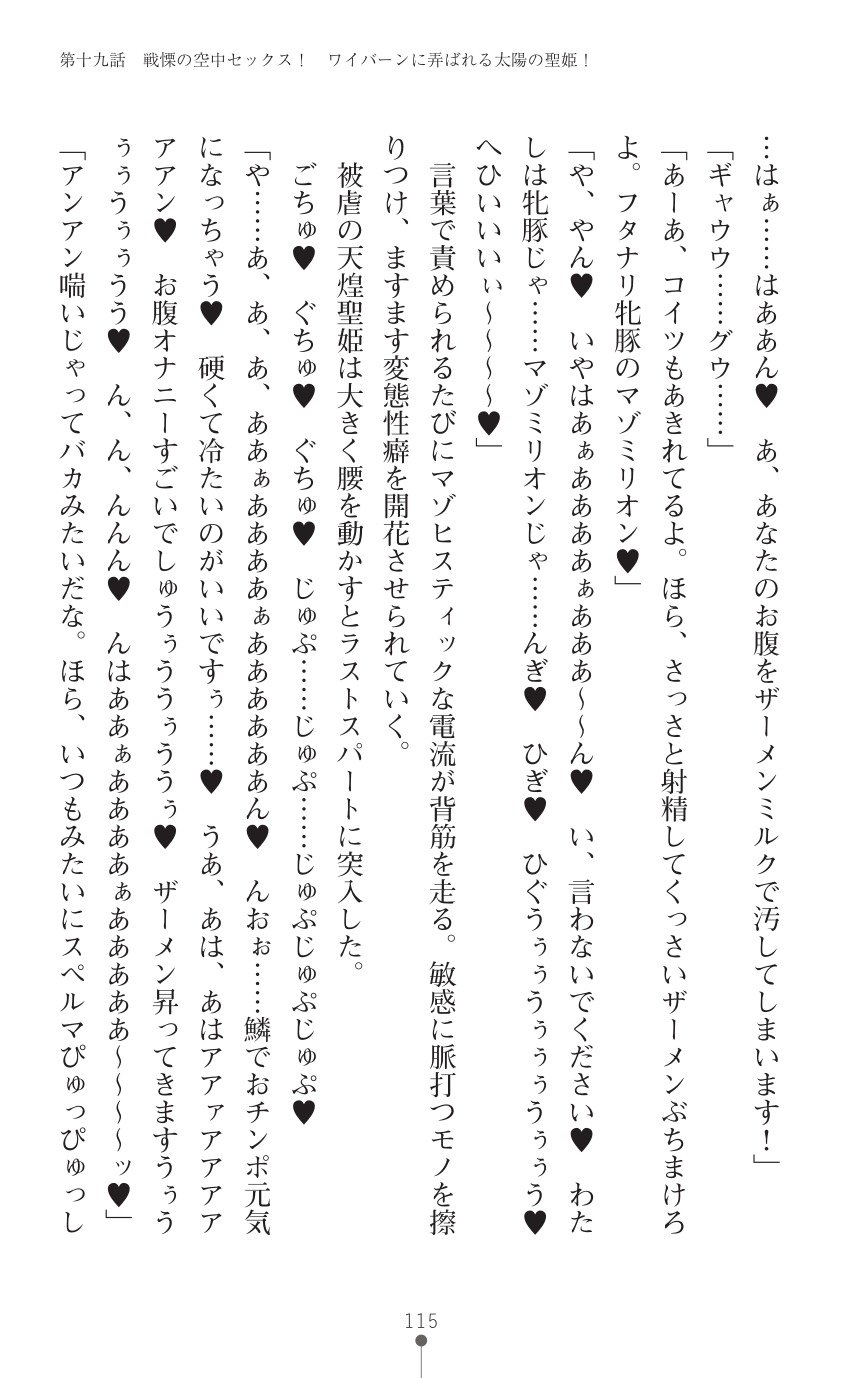 第十九話　戦慄の空中セックス！　ワイバーンに弄ばれる太陽の聖姫！
…はぁ……はああん♥　あ、あなたのお腹をザーメンミルクで汚してしまいます！」
「ギャウウ……グウ……」
「あーあ、コイツもあきれてるよ。ほら、さっさと射精してくっさいザーメンぶちまけろ
よ。フタナリ牝豚のマゾミリオン♥」
「や、やん♥　いやはあぁああああぁあああ～～ん♥　い、言わないでください♥　わた
しは牝豚じゃ……マゾミリオンじゃ……んぎ♥　ひぎ♥　ひぐうぅぅうぅぅぅうぅぅう♥
へひいいいぃ～～～～♥」
言葉で責められるたびにマゾヒスティックな電流が背筋を走る。敏感に脈打つモノを擦
りつけ、ますます変態性癖を開花させられていく。
被虐の天煌聖姫は大きく腰を動かすとラストスパートに突入した。
ごちゅ♥　ぐちゅ♥　ぐちゅ♥　じゅぷ……じゅぷ……じゅぷじゅぷじゅぷ♥
「や……あ、あ、あ、ああぁああああぁああああああん♥　んおぉ……鱗でおチンポ元気
になっちゃう♥　硬くて冷たいのがいいですぅ……♥　うあ、あは、あはアアァアアアア
アアン♥　お腹オナニーすごいでしゅうぅううぅううぅ♥　ザーメン昇ってきますうぅう
ぅぅうぅぅうう♥　ん、ん、んんん♥　んはああぁああああぁあああああ～～～～ッ♥」
「アンアン喘いじゃってバカみたいだな。ほら、いつもみたいにスペルマぴゅっぴゅっし
115